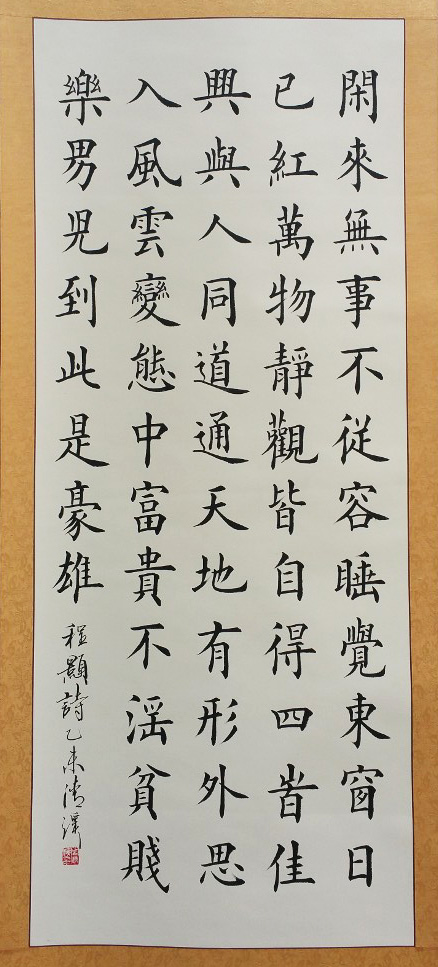 閑來無事不従容睡覺東窗日
已紅萬物靜觀皆自得四旹佳
興與人同道通天地有形外思
入風雲變態中富貴不淫貧賤
樂男児到此是豪雄
程顥詩乙未